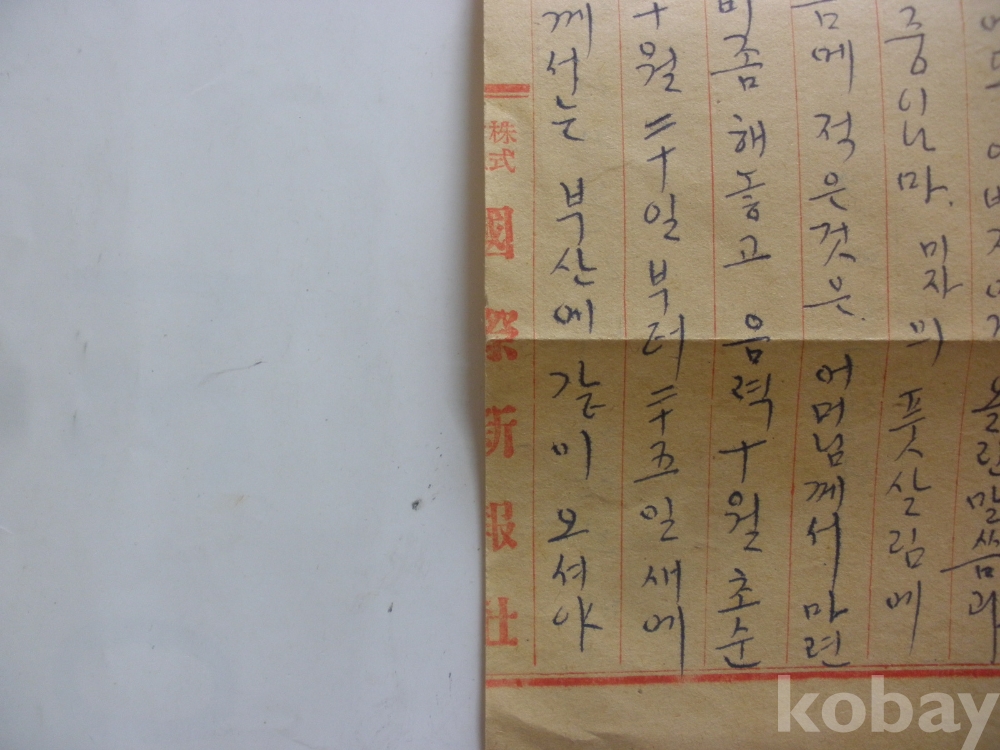 올린말씀과
중이나마. 미자의 풋살림에
적은것은. 어머님께서 마련
좀 해놓고 음력 十월 초순
十월 二十일부터 二十五일새에
께서는 부산에 같이 오셔야
株式
國際新報社
kobay